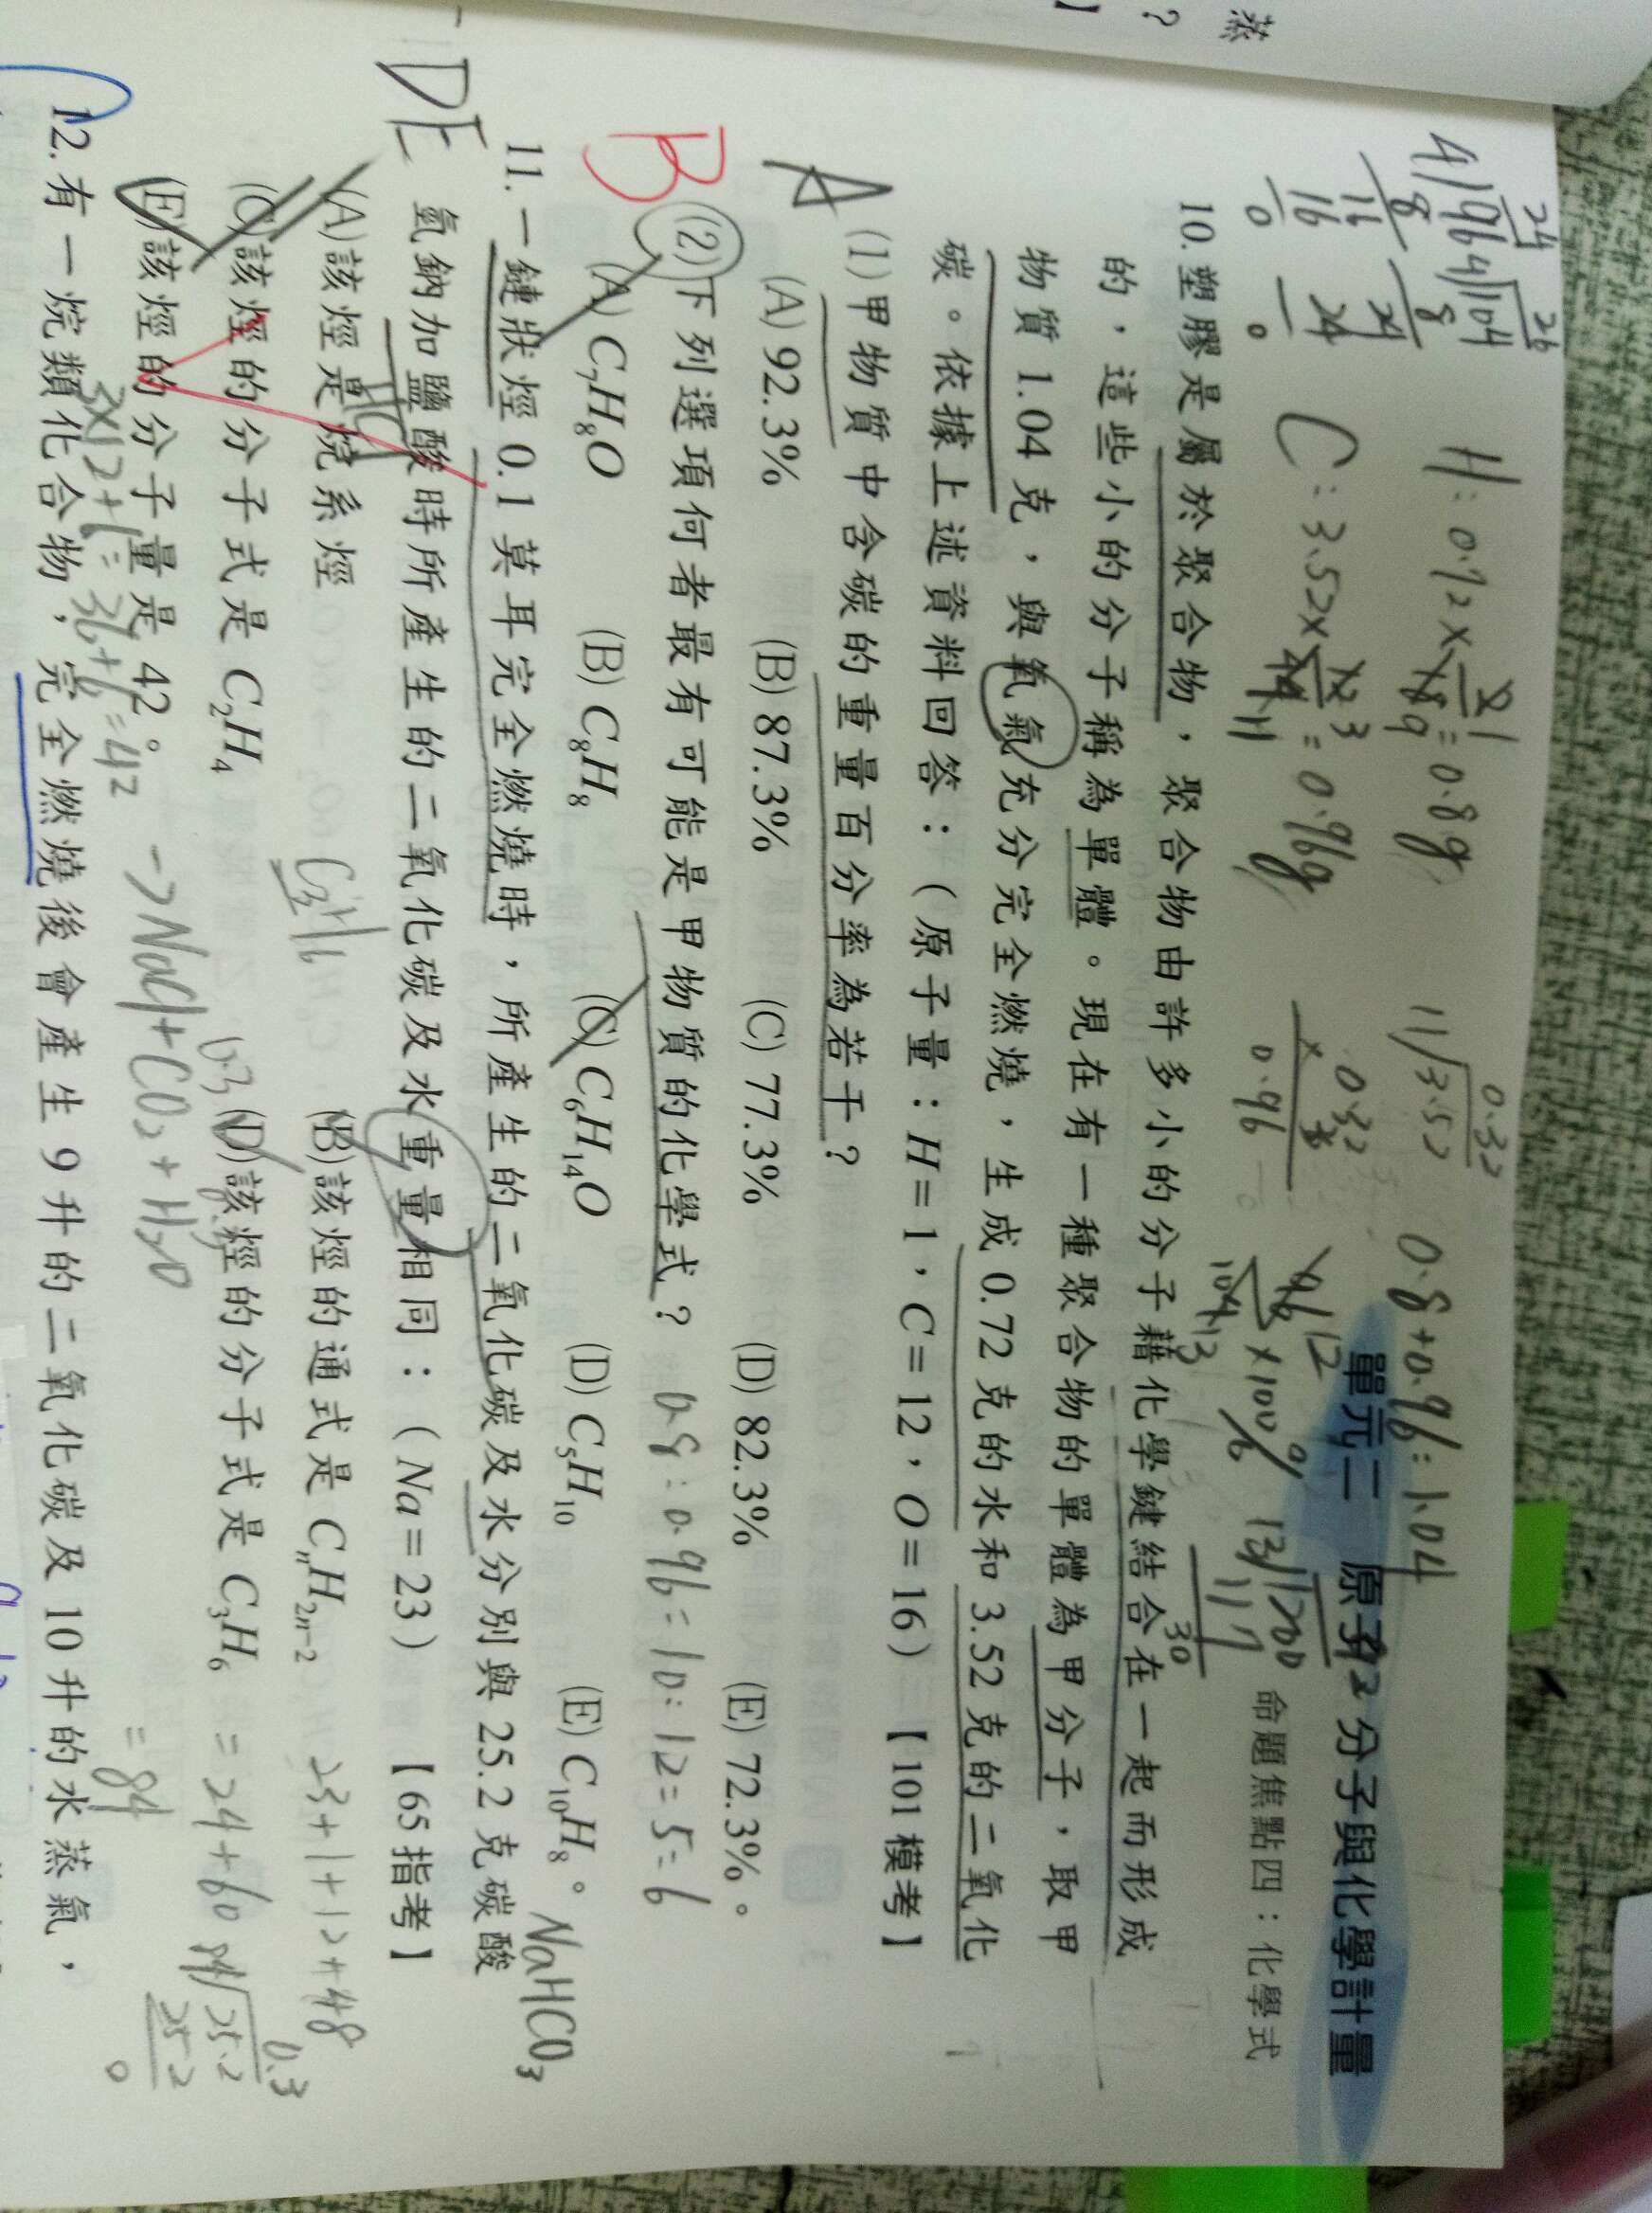 單元二 原子、分子與化學計量
命題焦點四：化學式
H：0.72×2/18=0.8g
C：3.52×12/44=0.96g
0.8+0.96=1.04
10.塑膠是屬於聚合物，聚合物由許多小的分子藉化學鍵結合在一起而形成
的，這些小的分子稱為單體。現在有一種聚合物的單體為甲分子，取甲
物質 1.04 克，與氧氣充分完全燃燒，生成 0.72 克的水和 3.52 克的二氧化
碳。依據上述資料回答：（原子量：H＝1，C＝12，O＝16）【101 模考】
A
(1)甲物質中含碳的重量百分率為若干？
(A) 92.3% (B) 87.3% (C) 77.3% (D) 82.3% (E) 72.3%。
B
(2)下列選項何者最有可能是甲物質的化學式？
0.8：0.96=10：12=5=6
(A) C7H8O (B) C8H8 (C) C6H14O (D) C5H10 (E) C10H8。
NaHCO3
DE
11.一鏈狀烴 0.1 莫耳完全燃燒時，所產生的二氧化碳及水分別與 25.2 克碳酸
氫鈉加鹽酸時所產生的二氧化碳及水重量相同：（Na＝23）【65 指考】
HCl
(A)該烴是烷系烴 (B)該烴的通式是 CnH2n-2
C3H6
23+1+12+48
(C)該烴的分子式是 C2H4 (D)該烴的分子式是 C3H6
=24+60
(E)該烴的分子量是 42。
=84
→NaCl+CO2+H2O
3×12+6=36+6=42
12.有一烷類化合物，完全燃燒後會產生 9 升的二氧化碳及 10 升的水蒸氣，